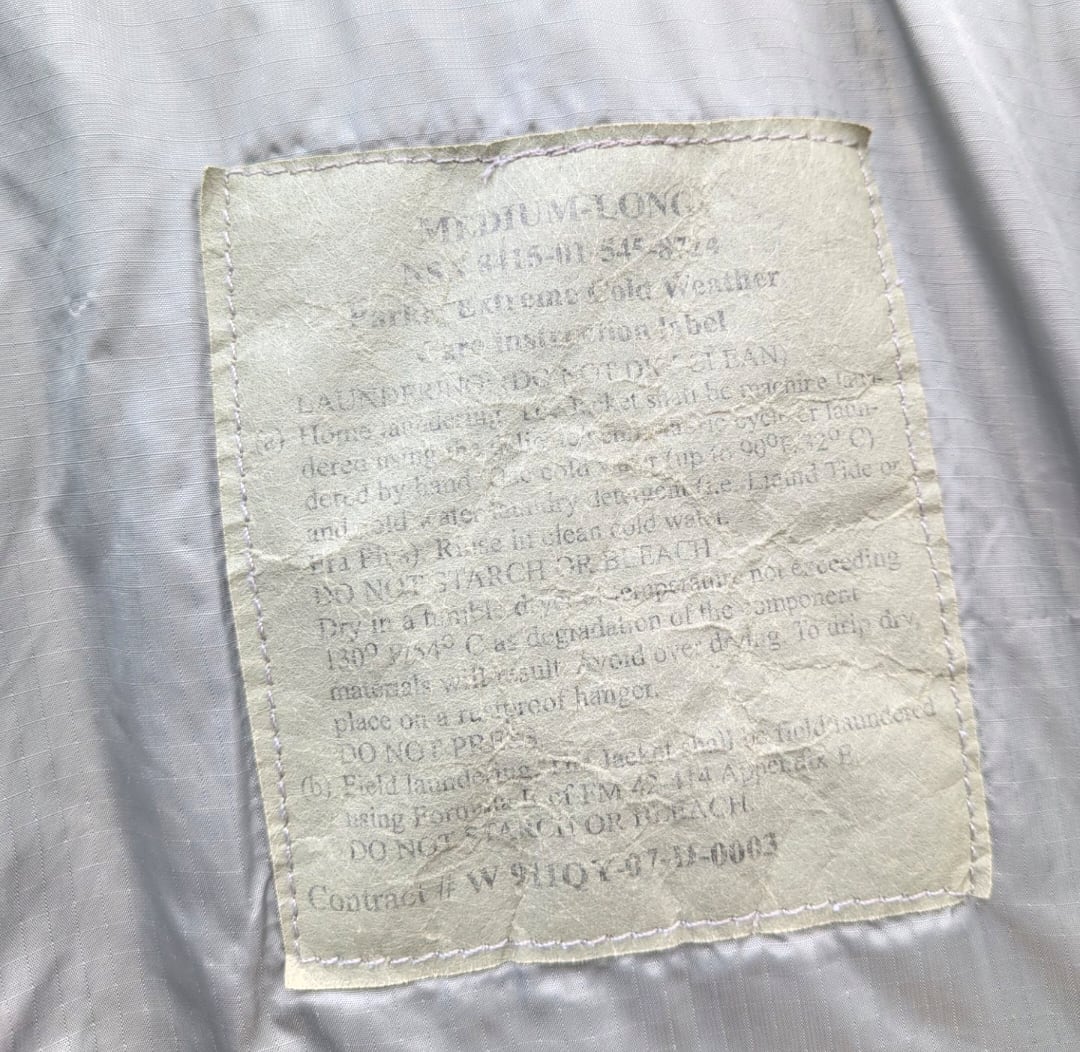 MEDIUM-LONG
NSN 8415-01-545-
Parka, Extreme Cold Weather
Care instruction label
LAUNDERING: (DO NOT DRY CLEAN)
(a) Home laundering. The Jacket shall be machine laun-
dered using the delicate fabric cycle or laun-
dered by hand. Use cold water (up to 90° F/32° C)
and cold water laundry detergent (i.e. Liquid Tide or
Era Plus). Rinse in clean cold water.
DO NOT STARCH OR BLEACH.
Dry in a tumble dryer at temperature not exceeding
130° F/54° C as degradation of the component
materials will result. Avoid over drying. To drip dry,
place on a rustproof hanger.
DO NOT PRESS.
(b) Field laundering. The Jacket shall be field laundered
using Formula of FM 42-414 Appendix E.
DO NOT STARCH OR BLEACH.
Contract # W 911QY-07-